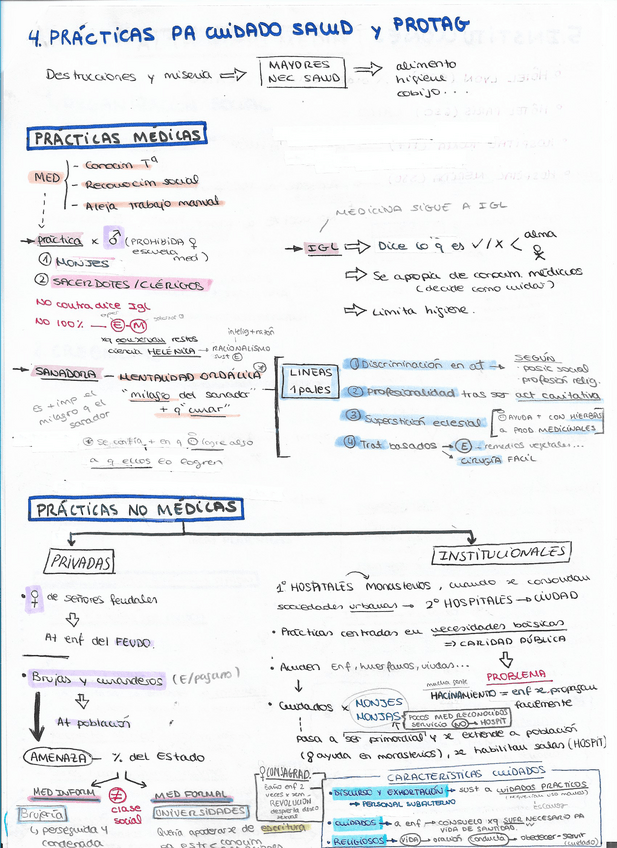 4. PRÁCTICAS PA CUIDADO SALUD y PROTAG
Destrucciones y miseria ⇒ MAYORES NEC SALUD ⇒ alimento
higiene
cobijo...
PRÁCTICAS MÉDICAS
MED
- Conocim Tª
- Reconocim social
- Aleja trabajo manual
práctica x ♂ (PROHIBIDA ♀
escuela med)
① MONJES
② SACERDOTES/CLÉRIGOS
NO contradice Igl
NO 100% — E-M
xq conservan restos
ciencia HELÉNICA → RACIONALISMO
intelig+razón
sust E
MEDICINA SIGUE A IGL
→ IGL ⇒ Dice lo q es ✓/X < alma
⇒ Se apropia de conocim médicos
(decide como cuidar)
⇒ Limita higiene.
→ SANADORA — MENTALIDAD ORDÁLICA
"milagro del sanador"
+ q "curar"
Es + imp el
milagro q el
sanador
Se confía + en q logre algo
a q ellos lo logren
LINEAS 1pales
① Discriminación en at → SEGÚN
· posic social
· profesión relig.
② Profesionalidad tras ser act caritativa
③ Superstición eclesial
AYUDA + CON HIERBAS
a PROD MEDICINALES
④ Trat basados → E - remedios vegetales...
CIRUGÍA FACIL
PRÁCTICAS NO MÉDICAS
PRIVADAS
• ♀ de señores feudales
⇩
At enf del FEUDO.
• Brujas y curanderos (E/pagano)
⇩
At población
AMENAZA - % del Estado
MED INFORM ≠ MED FORMAL
clase
social
Brujería
UNIVERSIDADES
↳ perseguida y
condenada
Quería apoderarse de escritura
INSTITUCIONALES
1º HOSPITALES Monasterios, cuando se consolidan
sociedades urbanas → 2º HOSPITALES → CIUDAD
• Prácticas centradas en necesidades básicas
⇒ CARIDAD PÚBLICA
• Acuden Enf, huerfanos, viudas...
PROBLEMA
mucha gente
HACINAMIENTO = enf se propagan
facilmente
• Cuidados x MONJES
MONJAS
POCOS MED RECONOCIDOS
SERVICIO NO → HOSPIT
pasa a 'ser primordial' y se extiende a población
(♀ ayuda en monasterios), se habilitan salas (HOSPIT)
♀ CONSAGRAD.
Baño enf 2
veces x sem =
REVOLUCIÓN
CARACTERÍSTICAS CUIDADOS
• DISCURSO Y EXHORTACIÓN → sust a CUIDADOS PRÁCTICOS
→ PERSONAL SUBALTERNO
esclavos
• CUIDADOS → a enf → CONSUELO xq SUFR NECESARIO PA
VIDA DE SANTIDAD.
• RELIGIOSOS → VIDA → oración CONDUCTA → obedecer-servir
(cuidado)